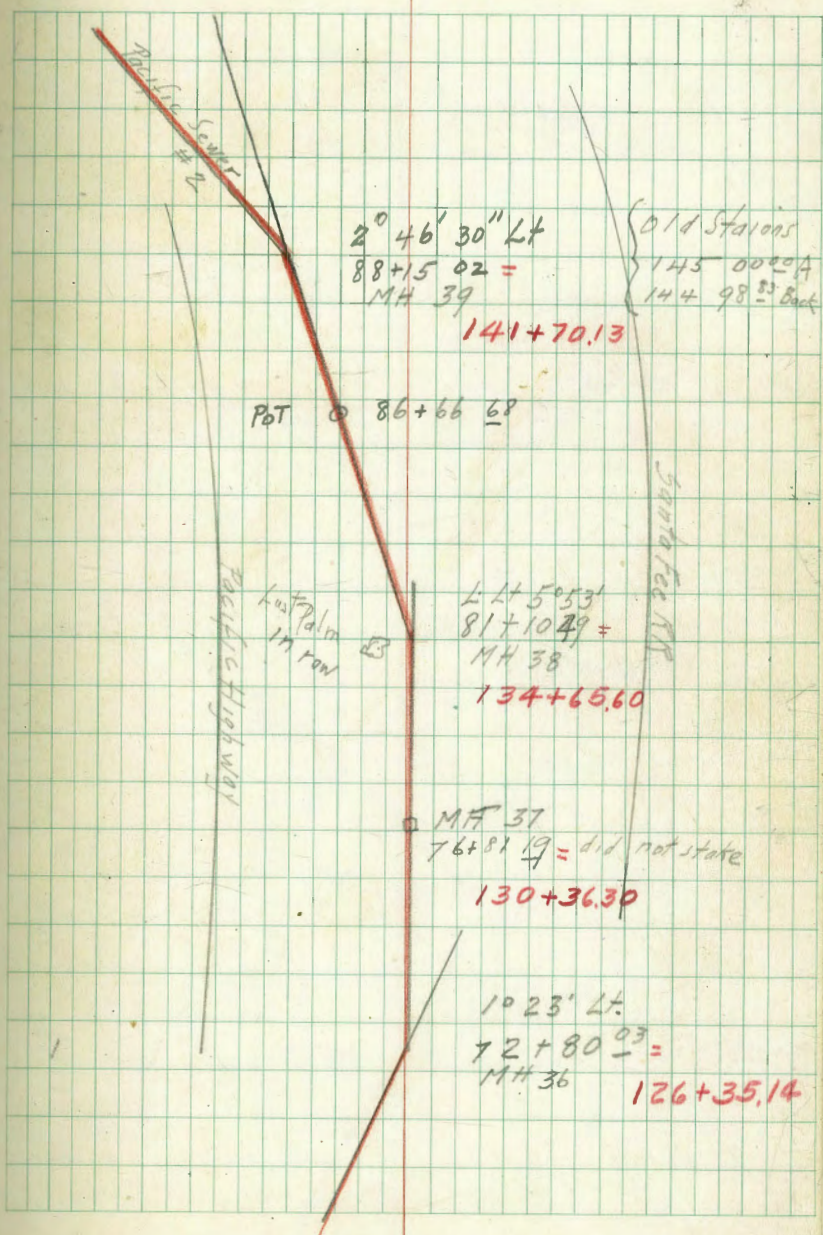 Pacific Sewer
#2
2° 46' 30" Lt
88+15 02 =
MH 39
141+70.13
Old Staions
145 00 00 A
144 98 83 Back
POT 86+66 68
Santa Fee RR
Pacific Highway
Last Palm
in row
L Lt 5°53'
81+10 49 =
MH 38
134+65.60
MH 37
76+81 19 = did not stake
130+36.30
1° 23' Lt.
72+80 03 =
MH 36
126+35.14